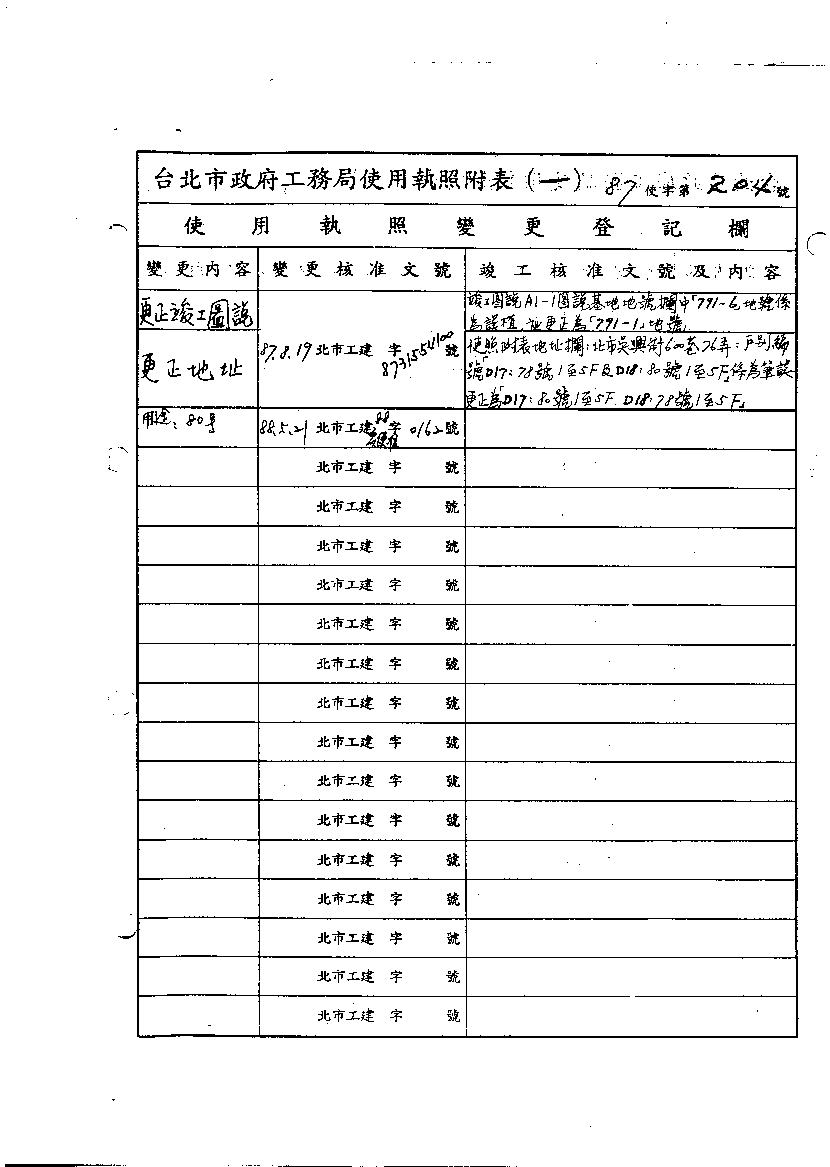 台北市政府工務局使用執照附表(一) 87使字第204號
使用執照變更登記欄
變更內容 變更核准文號 竣工核准文號及內容
更正竣工圖說
竣工圖說A1-1圖說基地地號欄中「791-6」地號係
為誤植,並更正為「791-1」地號
更正地址
87.8.19北市工建 字8731554100號
使照附表地址欄:北市吳興街600巷76弄:戶別編
號「D17:78號1至5F及D18:80號1至5F」係為筆誤
更正為「D17:80號1至5F D18:78號1至5F」
用途:80号 88.5.21 北市工建88字 0162號
北市工建 字 號
北市工建 字 號
北市工建 字 號
北市工建 字 號
北市工建 字 號
北市工建 字 號
北市工建 字 號
北市工建 字 號
北市工建 字 號
北市工建 字 號
北市工建 字 號
北市工建 字 號
北市工建 字 號
北市工建 字 號
北市工建 字 號